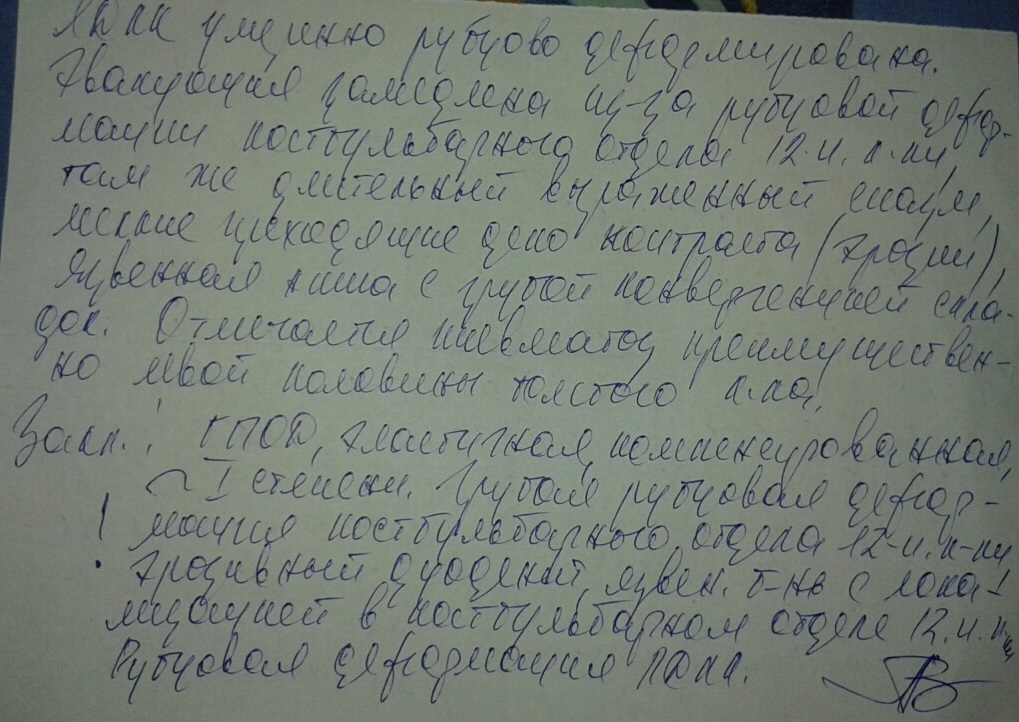 ЛДПК умеренно рубцово деформирована.
Эвакуация замедлена из-за рубцовой дефор-
мации постбульбарного отдела 12-п. к-ки,
там же длительный выраженный спазм,
мелкие депо контраста (эрозии),
язвенная ниша с грубой конвергенцией скла-
док. Отмечается пневматоз преимуществен-
но левой половины толстого к-ка.
Закл.: ГПОД, эластичная, компенсированная,
~ I степени. Грубая рубцовая дефор-
! мация постбульбарного отдела 12-п. к-ки,
эрозивный дуоденит, язвен. б-нь с лока-
лизацией в постбульбарном отделе 12-п. к-ки
Рубцовая деформация ЛДПК.